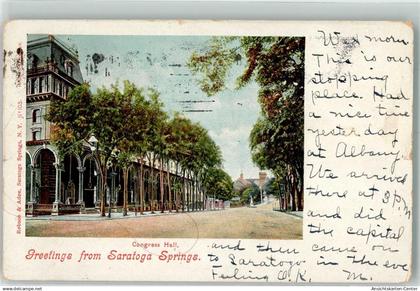 Wed morn
This is our
stopping
place. Had
a nice time
yesterday
at Albany.
We arrived
there at 3 P.M
and did
the capital
came on
and then
to Saratoga in the eve
Feeling O.K. M.
Congress Hall,
Greetings from Saratoga Springs.
Robson & Adee, Saratoga Springs, N. Y.
© Ansichtskarten-Center
Ansichtskarten-Center.com